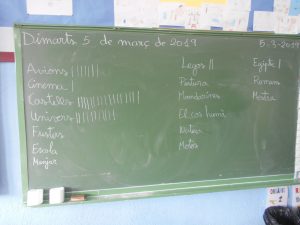 Dimarts, 5 de març de 2019
5-3-2019
Avions
Cinema
Castells
Univers
Fustes
Escola
Menjar
Legos
Pintura
Mandarines
El cos humà
Motos
Egipte
Romans